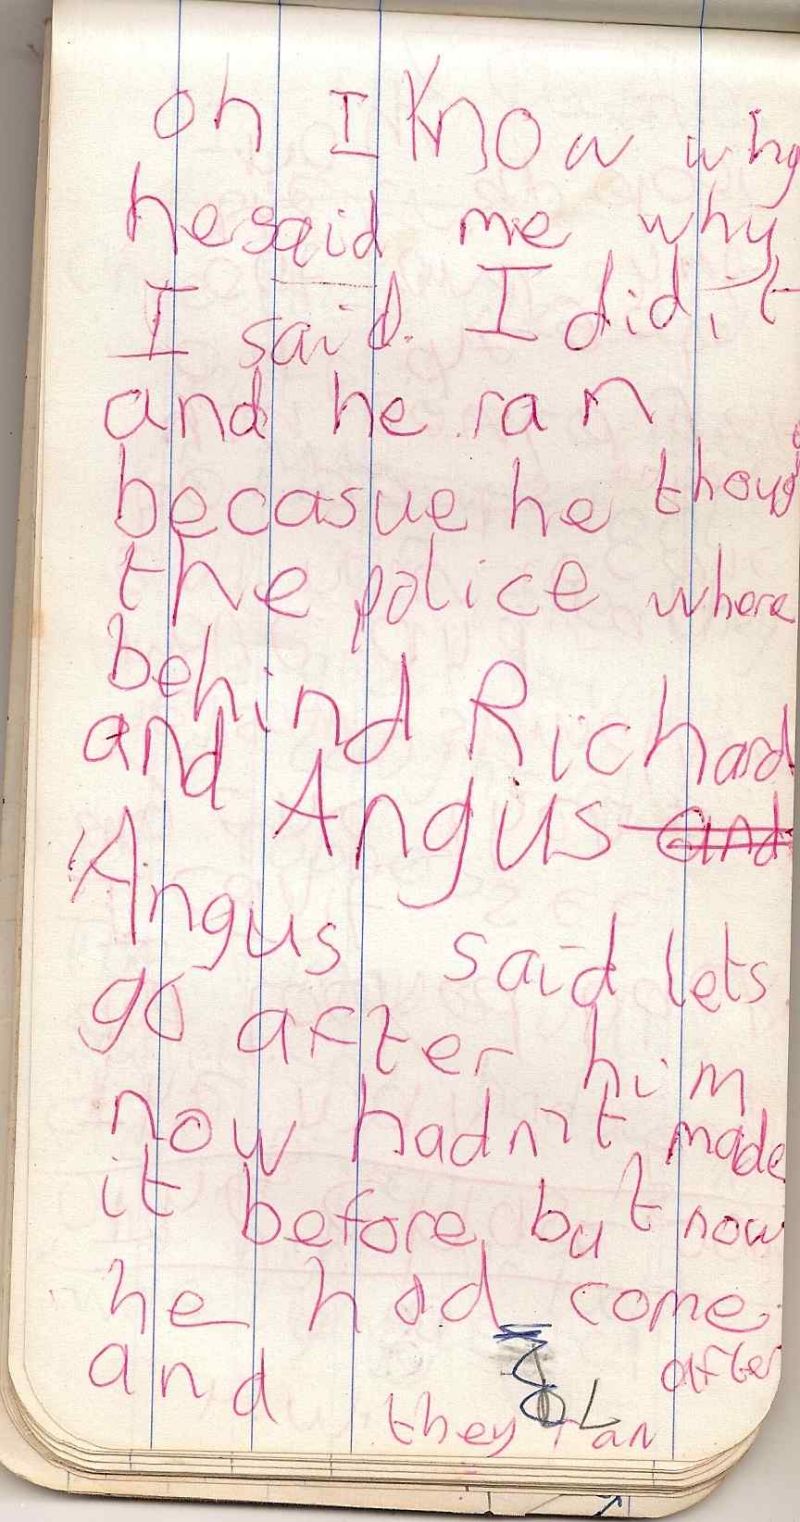 oh I Know why
he said me why
I said. I did it
and he ran
becasue he thoug
the police where
behind Richard
and Angus and
Angus said lets
go after him
now hadn't made
it before but now
he had come
and they ran after